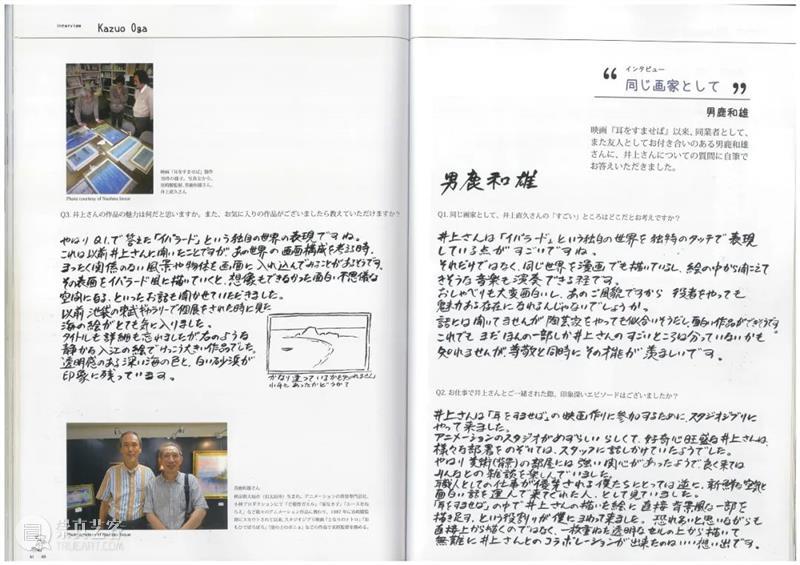 インタビュー
“ 同じ画家として ”
男鹿和雄
映画『耳をすませば』以来、同業者として、
また友人としてお付き合いのある男鹿和雄
さんに、井上さんについての質問に自筆で
お答えいただきました。
男鹿和雄
Q1. 同じ画家として、井上直久さんの「すごい」ところはどこだとお考えですか?
井上さんは「イバラード」という独自の世界を独特のタッチで表現
している点がすごいですね。
それだけではなく、同じ世界を漫画でも描いているし、絵の中から聞こえて
きそうな音楽も演奏できる程です。
おしゃべりも大変面白いし、あのご風貌ですから 役者をやっても
魅力ある存在になれるんじゃないでしょうか。
話には聞いてませんが陶芸家をやっても似合いそうだし、面白い作品ができそうです。
これでも まだほんの一部しか井上さんのすごいところは分っていないかも
知れませんが、尊敬と同時にその才能が 羨ましいです。
Q2. お仕事で井上さんとご一緒された際、印象深いエピソードはございましたか?
井上さんは「耳をすませば」の映画作りに参加するために、スタジオジブリに
やって来ました。
アニメーションのスタジオがめずらしいらしくて、好奇心旺盛な井上さんは、
様々な部署をのぞいては、スタッフに話しかけていたようでした。
やはり 美術(背景)の部屋には 強い関心があったようで、良く来ては
みんなとの雑談を楽しんでいました。
職人としての仕事が優先される僕たちにとっては逆に、新鮮な空気と
面白い話を運んで来てくれた人、として見ていました。
「耳をすませば」の中で井上さんの描いた絵に直接 背景風な一部を
描き足す、という役割りが僕にまわって来ました。恐れ多いと思いながらも
直接上から描くのではなく、一枚重ねた透明なセルの上から描いて
無難に 井上さんとのコラボレーションが出来たのはいい想い出です。
Interview
Kazuo Oga
映画『耳をすませば』製作
当時の様子。写真左から、
宮崎駿監督、男鹿和雄さん、
井上直久さん
Photo courtesy of Naohisa Inoue
Q3. 井上さんの作品の魅力は何だと思いますか。また、お気に入りの作品がございましたら教えていただけますか?
やはり Q1.で答えた「イバラード」という独自の世界の表現ですね。
これは以前井上さんに聞いたことですが、あの世界の画面構成を考える時、
まったく関係のない風景や物体を画面に入れ込んでみることがあるそうです。
その表面をイバラード風に描いていくと、想像もできなかった面白い不思議な
空間になる、といったお話も聞かせていただきました。
以前 池袋の東武ギャラリーで個展をされた時に見た
海の絵がとても気に入りました。
タイトルも詳細も忘れましたが右のような
静かな入江の絵でけっこう大きい作品でした。
透明感のある深い海の色と、白い砂浜が
印象に残っています。
かなり違っているかも知れません
小舟もあったかどうか?
男鹿和雄さん
秋田県大仙市(旧太田町)生まれ。アニメーションの背景専門会社、
Photo courtesy of Naohisa Inoue
61 60
崇真艺客
TRUEART.COM